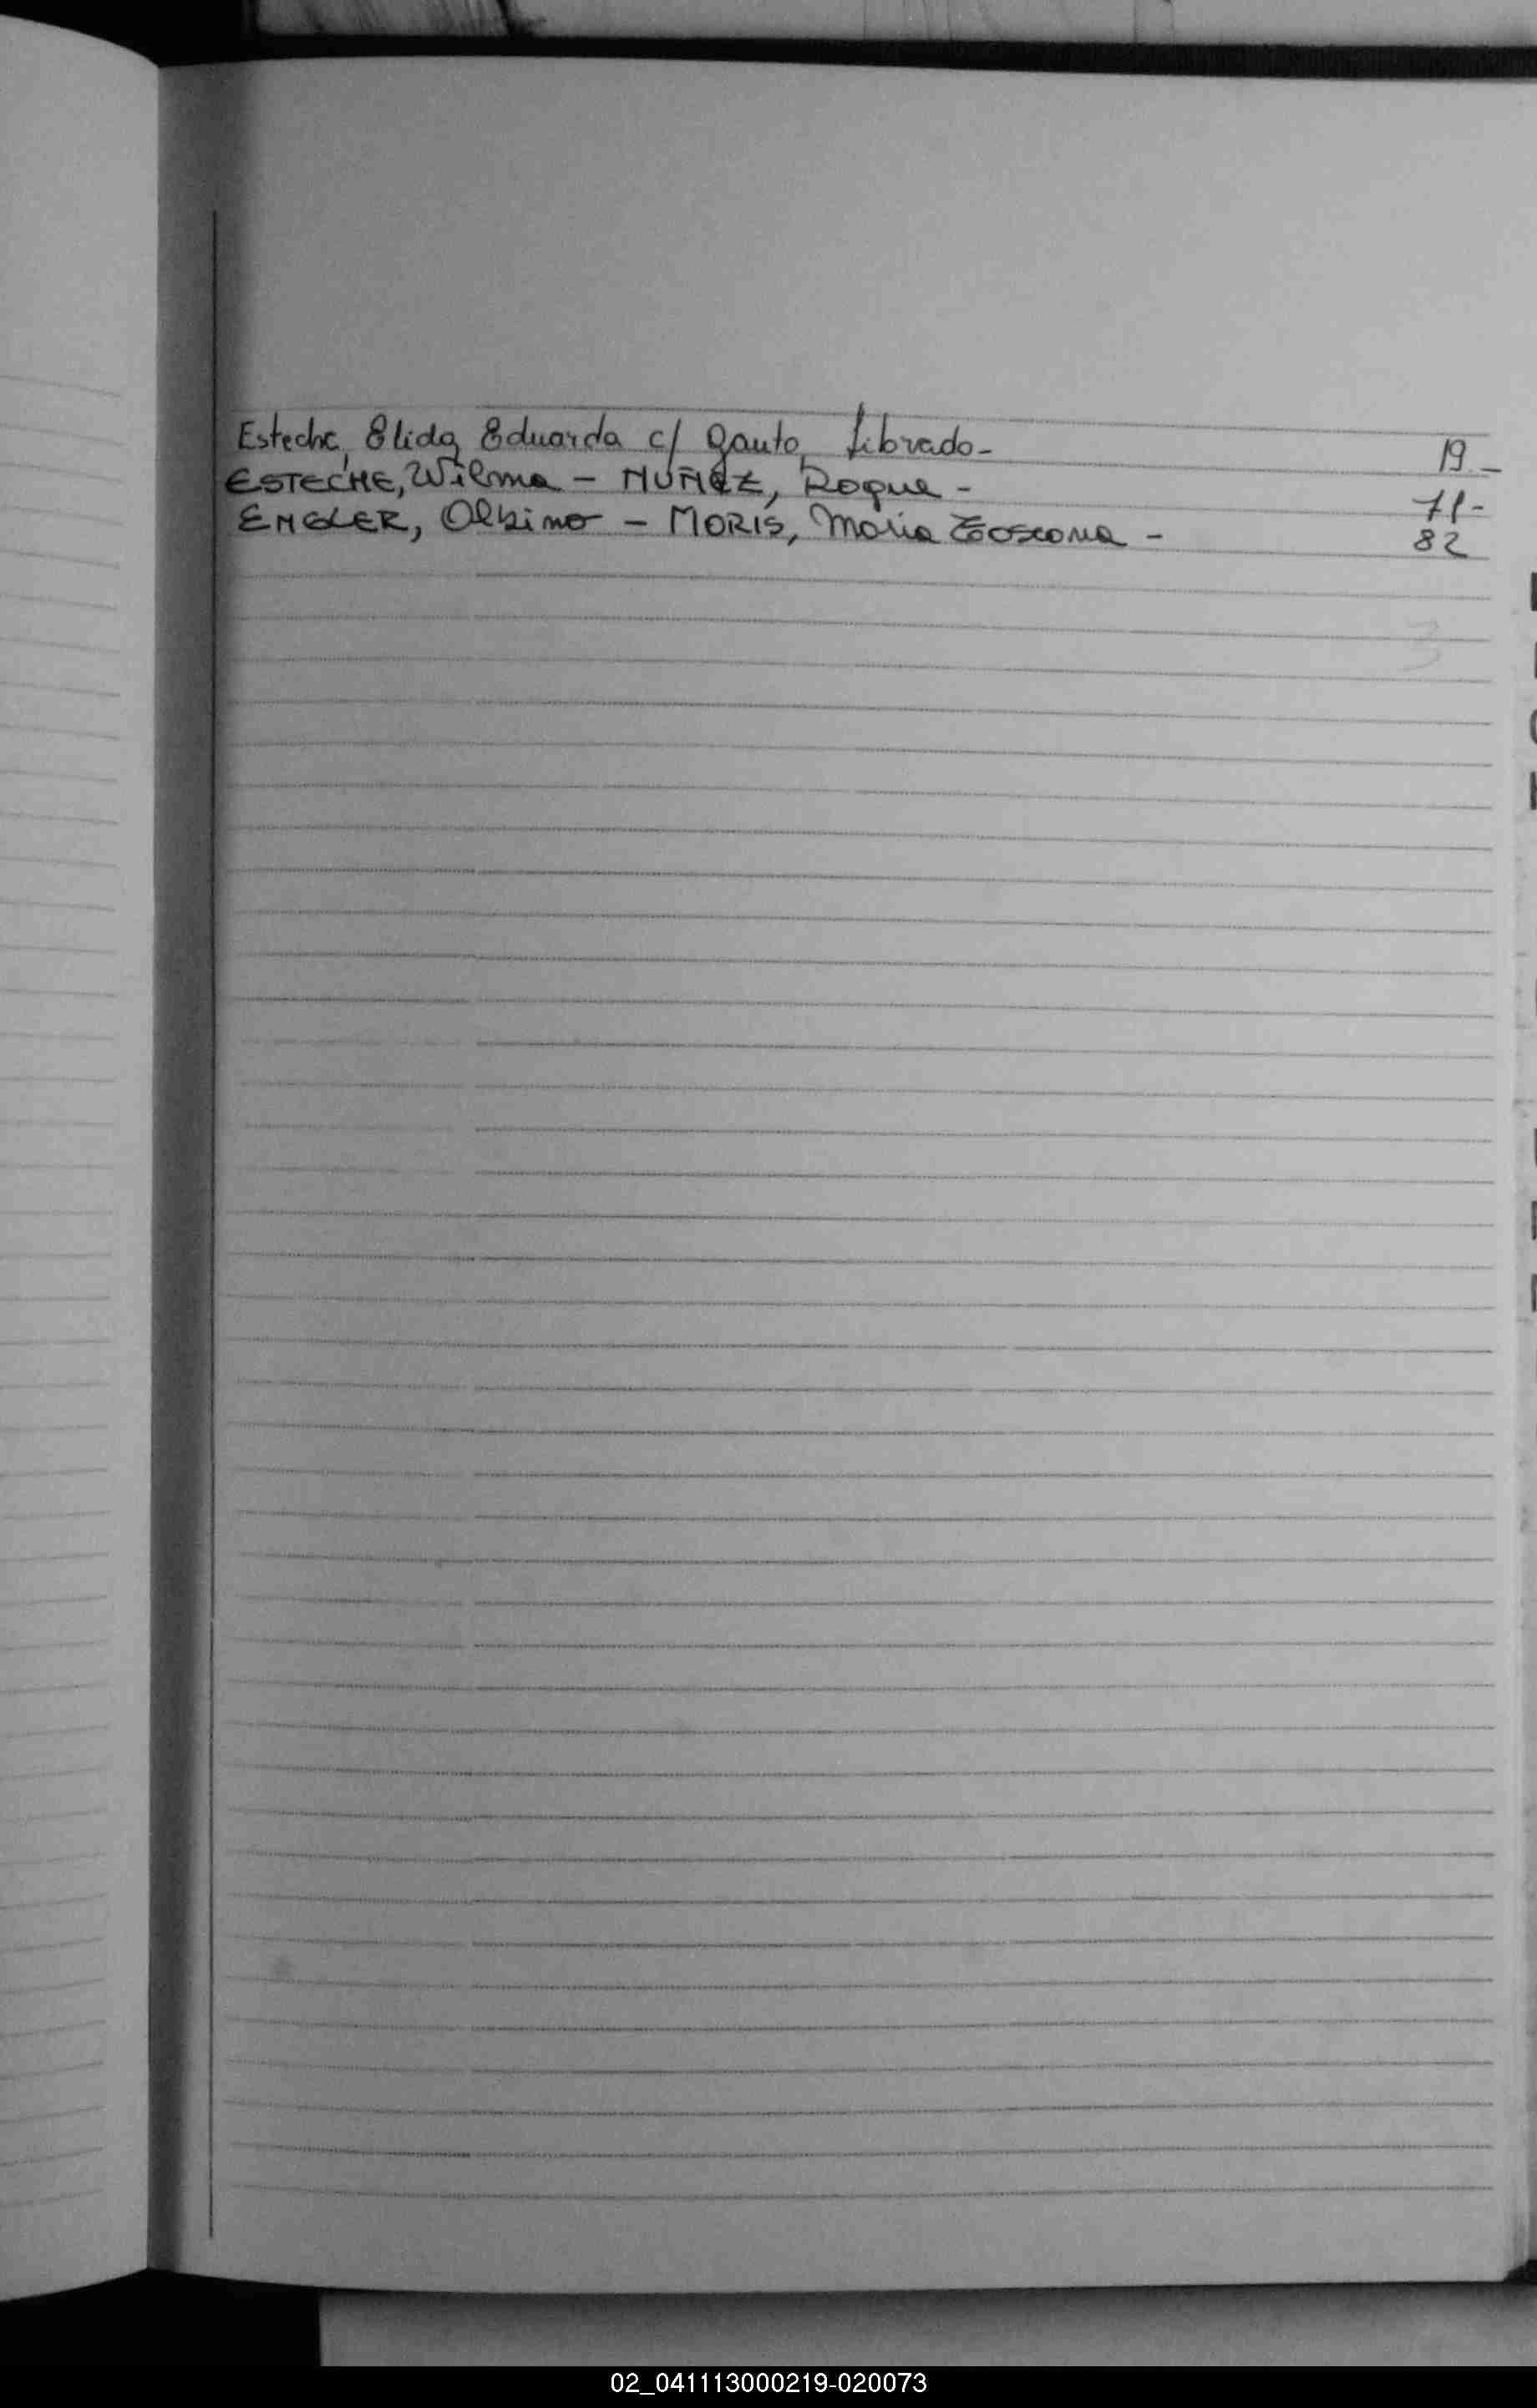 Esteche, Elida Eduarda c/ Gauto, Librado- 19.-
ESTECHE, Wilma - NUÑEZ, Roque - 71-
ENGLER, Albino - MORIS, Maria - 82
02_041113000219-020073